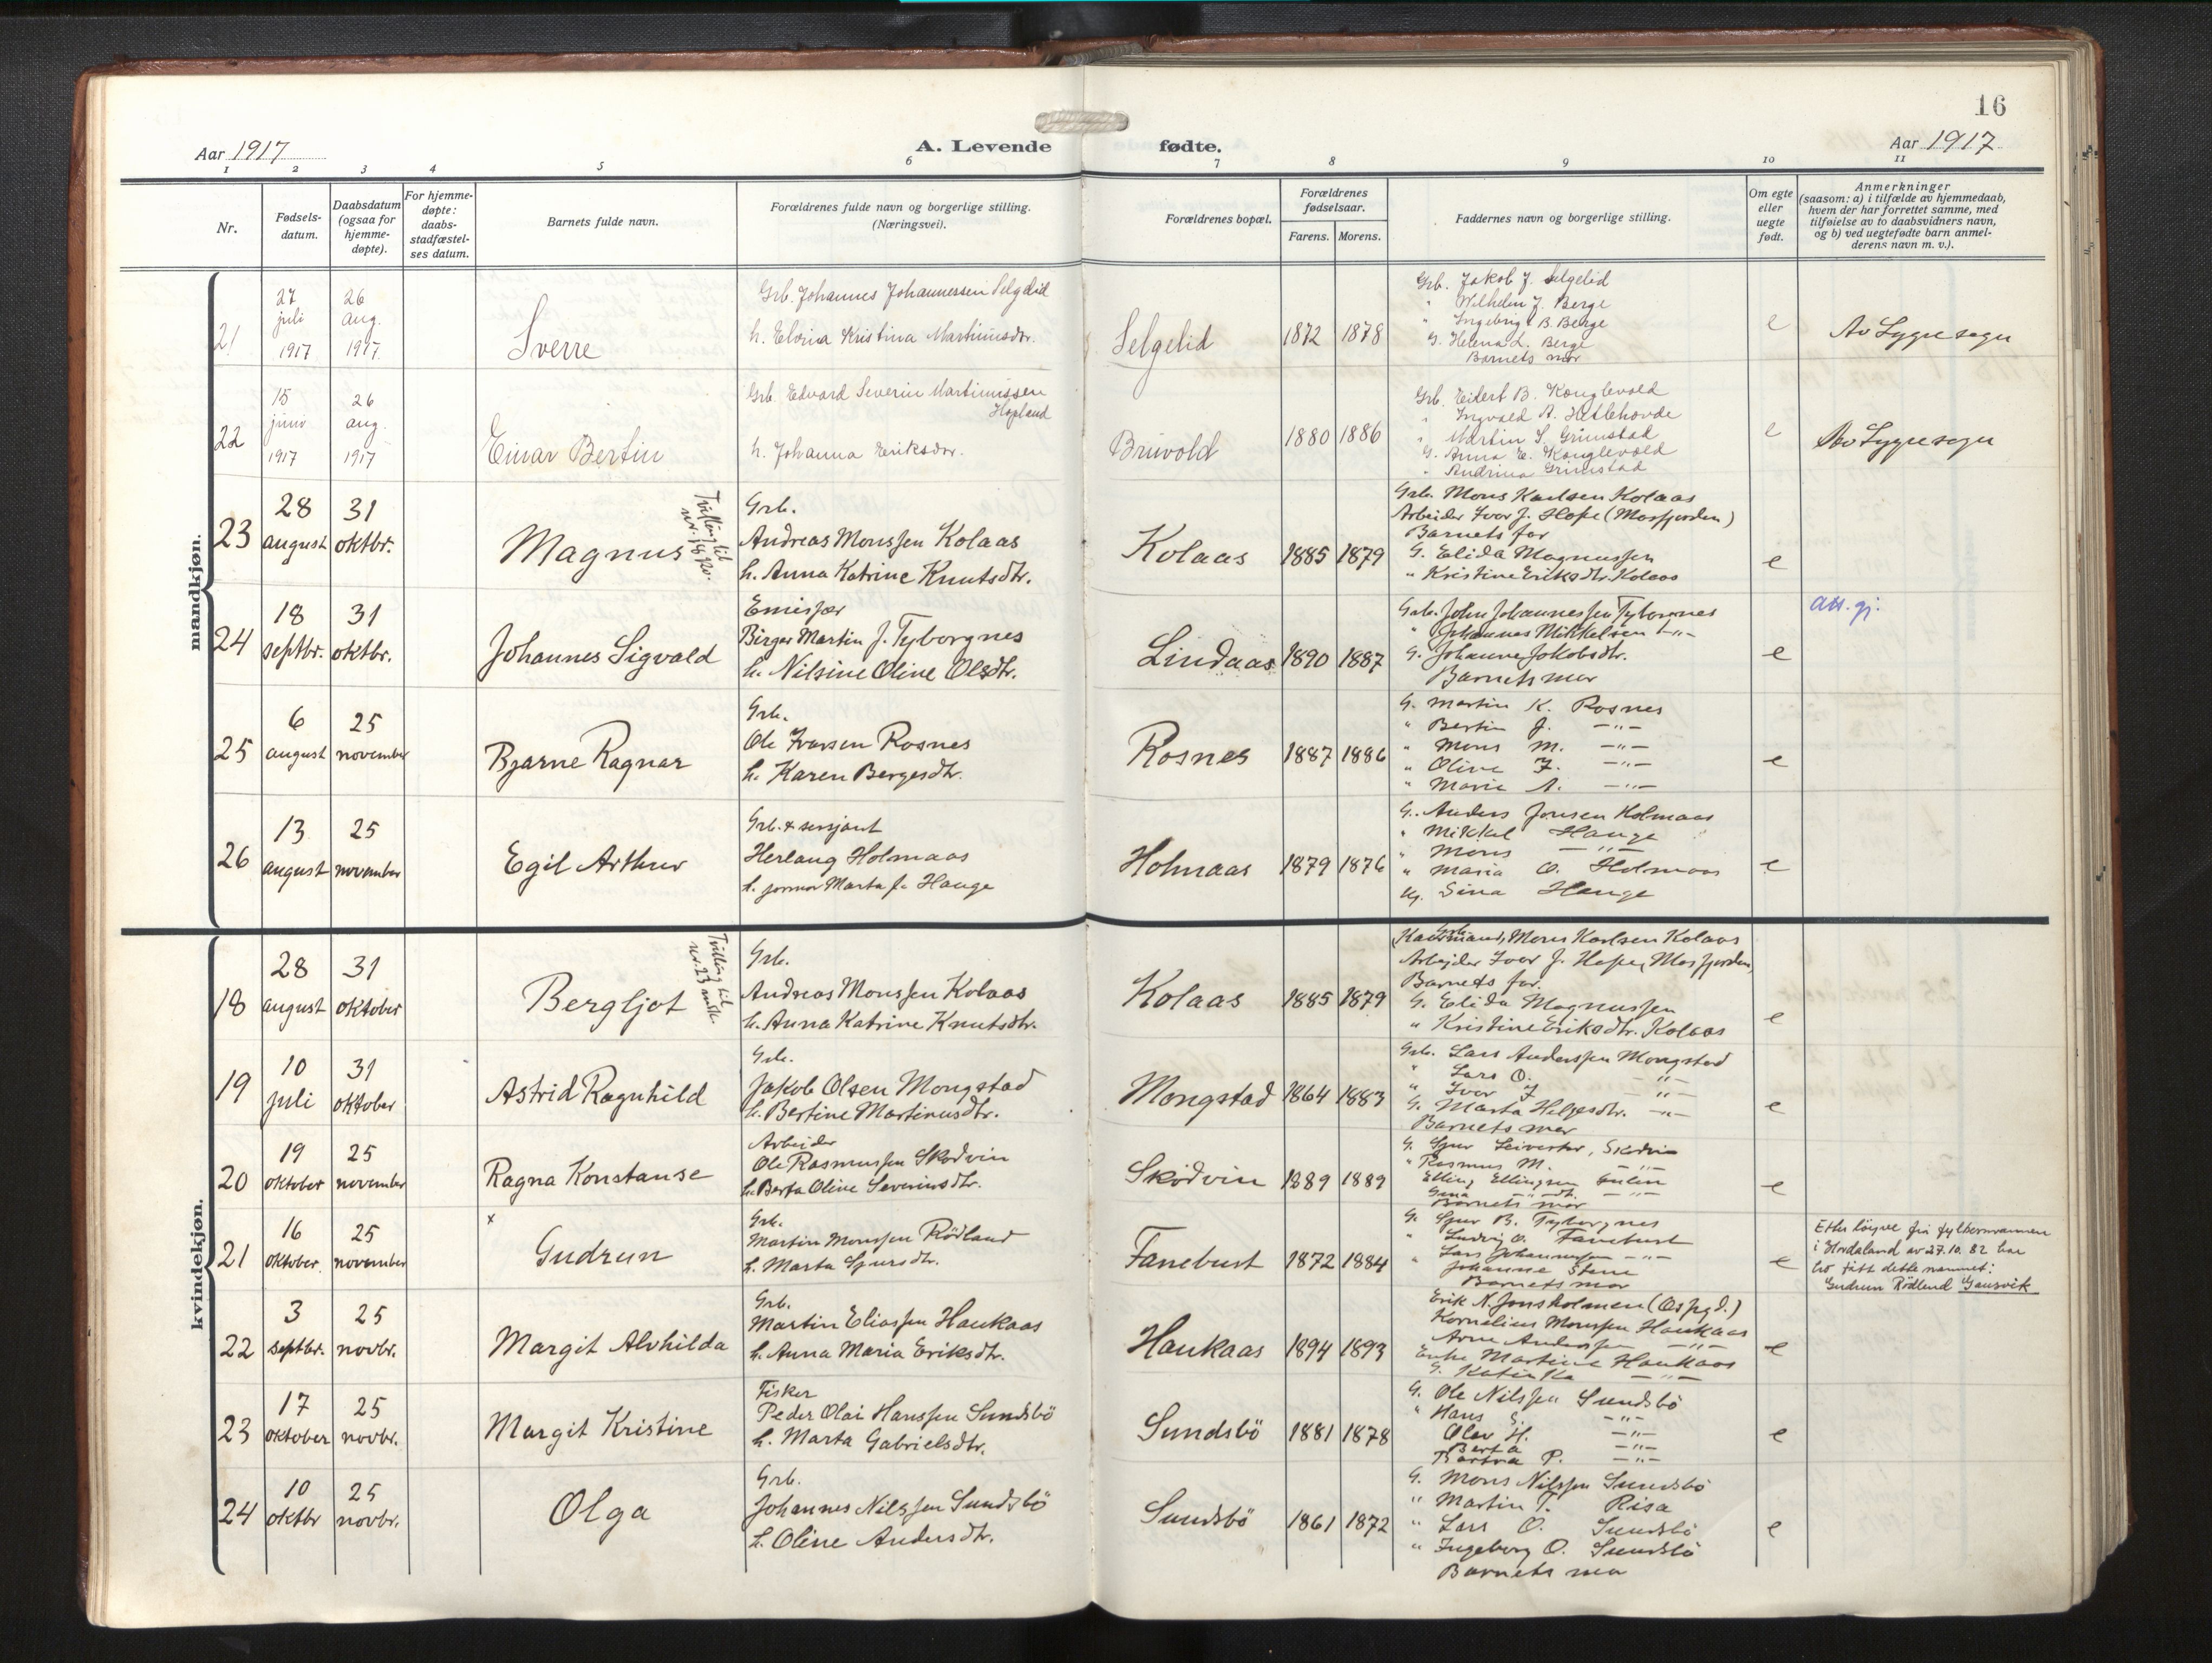 16
Aar 1917
A. Levende fødte.
Aar 1917
1 2 3 4 5 6 7 8 9 10 11
Nr.
Fødsels-
datum.
Daabsdatum
(ogsaa for
hjemme-
døpte).
For hjemme-
døpte:
daabs-
stadfæstel-
ses datum.
Barnets fulde navn.
Forældrenes fulde navn og borgerlige stilling.
(Næringsvei).
Forældrenes bopæl.
Forældrenes
fødselsaar.
Farens. Morens.
Faddernes navn og borgerlige stilling.
Om egte
eller
uegte
født.
Anmerkninger
(saasom: a) i tilfælde av hjemmedaab,
hvem der har forrettet samme, med
tilføielse av to daabsvidners navn,
og b) ved uegtefødte barn anmel-
derens navn m. v.).
mandkjøn.
21
27
juli
1917
26
aug.
1917
Sverre
Grb. Johannes Johannessen Selgelid
h. Kristina Martinusdtr.
Selgelid
1872 1878
Grb. Jakob J. Selgelid
" Wilhelm J. Berge
" Ingebrigt B. Berge
G. Helena L. Berge
Barnets mor
e
Av Lygre sogn
22
15
juni
1917
26
aug.
1917
Einar Bertin
Grb. Edvard Severin Martinussen
Hopland
h. Johanna Eriksdtr.
Bruvold
1880 1886
Grb. Eilert B. Konglevold
" Ingvald A. Hetlehovde
" Martin S. Grimstad
G. Anna E. Konglevold
" Andrina Grimstad
e
Av Lygre sogn
23
28
august
31
oktbr.
Magnus
Tvilling til
nr. 18 kv.
Grb.
Andreas Monssen Kolaas
h. Anna Katrine Knutsdtr.
Kolaas
1885 1879
Grb. Mons Karlsen Kolaas
Arbeider Ivar J. Hope (Masfjorden)
Barnets far
G. Elida Magnussen
" Kristine Eriksdtr. Kolaas
e
24
18
septbr.
31
oktbr.
Johannes Sigvald
Emissær
Birger Martin J. Tyborgnes
h. Nilsine Oline Olsdtr.
Lindaas
1890 1887
Grb. John Johannessen Tybornes
" Johannes Mikkelsen —"—
G. Johanne Jakobsdtr.
Barnets mor
e
att. gj.
25
6
august
25
november
Bjarne Ragnar
Grb.
Ole Ivarsen Rosnes
h. Karen Bergesdtr.
Rosnes
1887 1886
G. Martin K. Rosnes
" Bertin J. —"—
" Mons M. —"—
" Oline I. —"—
" Marie A. —"—
e
26
13
august
25
november
Egil Arthur
Grb. + sersjant
Herlaug Holmaas
h. jormor Marta J. Hauge
Holmaas
1879 1876
G. Anders Jonsen Holmaas
" Mikkel Hauge
" Mons —"—
" Maria O. Holmaas
Sina Hauge
e
kvindekjøn.
18
28
august
31
oktober
Bergljot
Tvilling til
nr. 23 msk.
Grb.
Andreas Monssen Kolaas
h. Anna Katrine Knutsdtr.
Kolaas
1885 1879
Grb. Mons Karlsen Kolaas
Arbeider Ivar J. Hope, Masfjorden,
Barnets far.
G. Elida Magnussen
" Kristine Eriksdtr. Kolaas
e
19
10
juli
31
oktober
Astrid Ragnhild
Grb.
Jakob Olsen Mongstad
h. Bertine Martinusdtr.
Mongstad
1864 1883
Grb. Lars Anderssen Mongstad
" Lars O. —"—
" Ivar J —"—
G. Marta Helgesdtr. —"—
Barnets mor
e
20
19
oktober
25
november
Ragna Konstanse
Arbeider
Ole Rasmussen Skodvin
h. Berta Oline Severinsdtr.
Skodvin
1889 1889
G. Sjur Skodvin
" Rasmus M. —"—
Elling Ellingsen
Barnets mor
e
21
16
oktober
25
november
x
Gudrun
Grb.
Martin Monssen Rødland
h. Marta Sjursdtr.
Fanebust
1872 1884
G. Sjur B. Tyborgnes
" Ludvig O. Fanebust
" Lars Johannessen —"—
Johanne Stene
Barnets mor
e
Etter løyve frå fylkesmannen
i Hordaland av 27.10.82 har
ho fått dette namnet:
Gudrun Rødland Gausvik
22
3
septbr.
25
novbr.
Margit Alvhilda
Grb.
Martin Eliassen Haukaas
h. Anna Maria Eriksdtr.
Haukaas
1894 1893
Erik N. Jonsholmen (Ospgd.)
Kornelius Monssen Haukaas
Arne Anderssen —"—
Enke Martine Haukaas
G. Katinka —"—
e
23
17
oktober
25
novbr.
Margit Kristine
Fisker
Peder Olai Hanssen Sundsbö
h. Marta Gabrielsdtr.
Sundsbö
1881 1878
G. Ole Nilssen Sundsbö
" Hans —"—
Olav H. —"—
Berta —"—
P. —"—
e
24
10
oktbr
25
novbr.
Olga
Grb.
Johannes Nilssen Sundsbö
h. Oline Andersdtr.
Sundsbö
1861 1872
G. Mons Nilssen Sundsbö
" Martin T. Risa
" Lars O. Sundsbö
" Ingeborg O. Sundsbö
Barnets mor
e